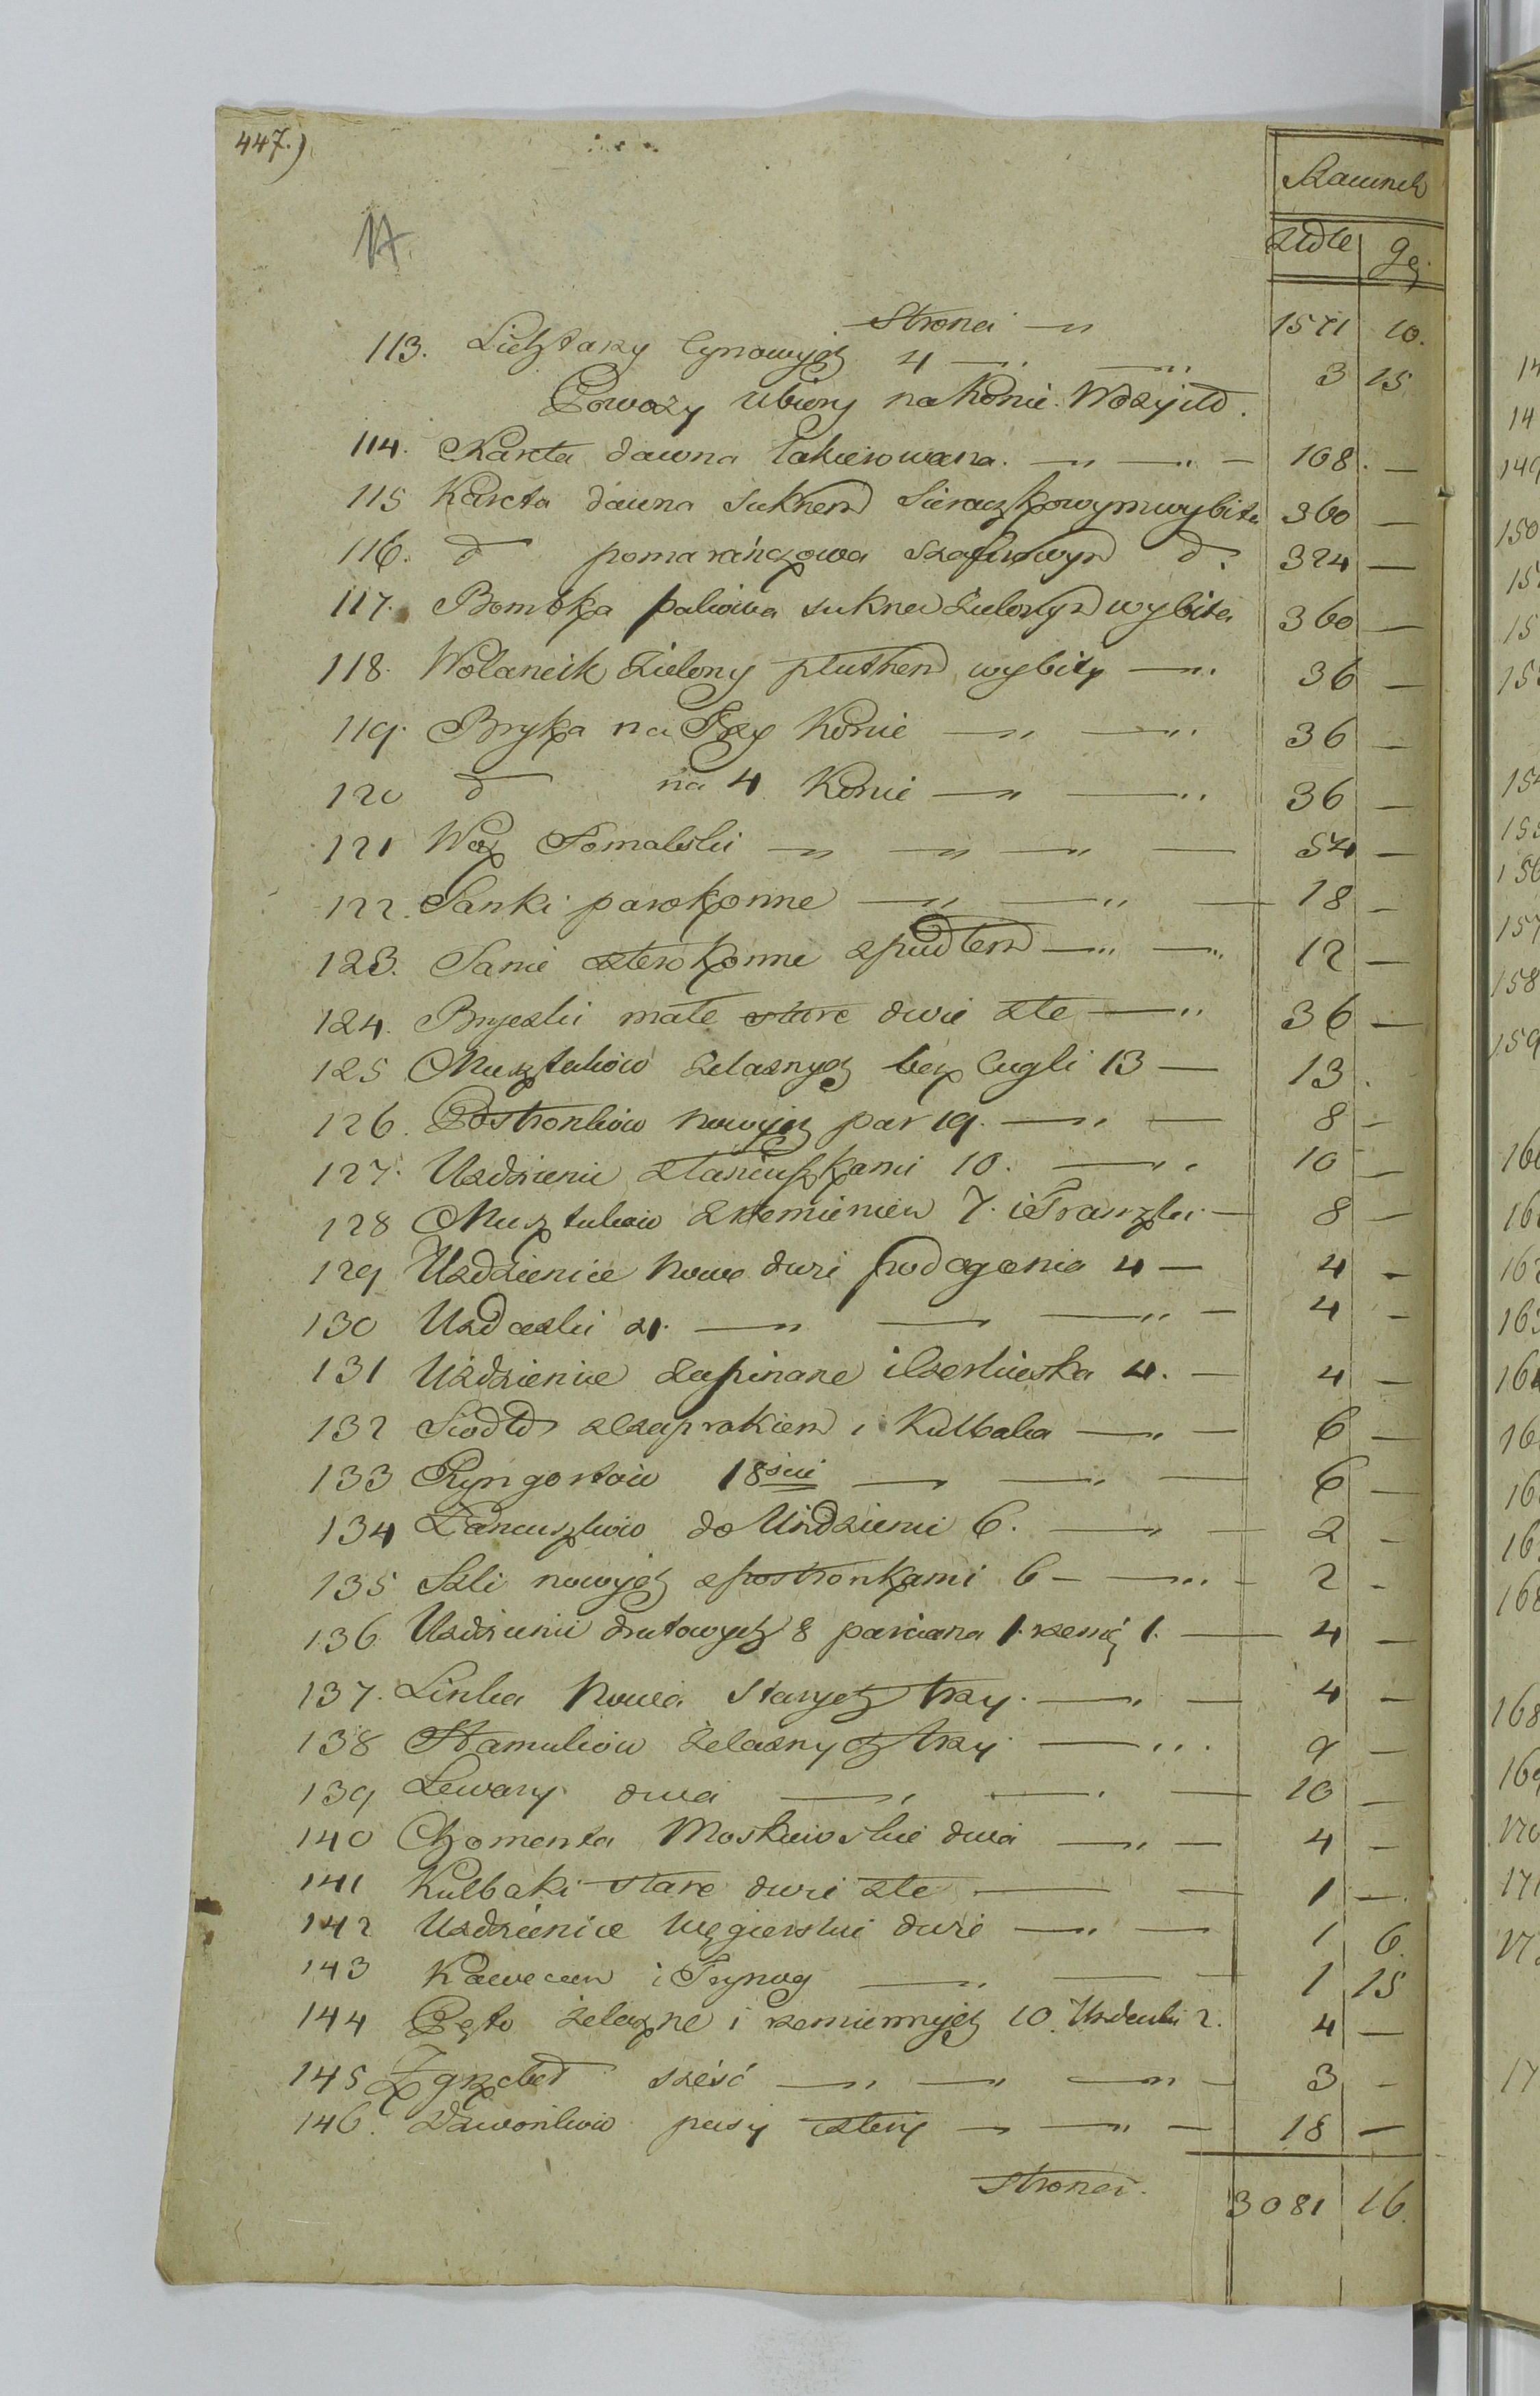 447.)
Szacunek
Złote gr.
Strona — „ 1571 10.
113. Lichtarzy Cynowych 4 — „ 3 15
Powozy ubiory na Konie Wozy itd.
114. Kareta dawna lakierowana. — „ — „ — 108. —
115 Kareta dawna suknem Sieraczkowym wybita 360 —
116. d pomarańczowa szafirowym d. 324 —
117. Bombka paliowa sukne Zielonym wybita 360 —
118. Wolancik Zielony pluthem wybity — „ 36 —
119. Bryka na Trzy Konie — „ — „ 36 —
120 d na 4 Konie — „ — „ 36 —
121 Woz Fornalski — „ — „ — „ — 54 —
122. Sanki parokonne — „ — „ — 18 —
123. Sanie czterokonne z pudłem — „ — „ 12 —
124. Bryczki małe stare dwie złe — „ 36 —
125 Musztuków żelaznych bez Cugli 13 — 13.
126. Postronków nowych par 19. — „ — 8 —
127. Uzdzienic z łańcuszkami 10. — „ 10 —
128 Musztuków z rzemieniem 7. i Tranzla — 8 —
129 Uzdzienice nowe dwie pod ogonia 4 — 4 —
130 Uzdeczki — „ — — „ — 4 —
131 Uzdzienice zapinane 4. — 4 —
132 Siodło z czaprakiem i Kulbaka — „ — 6 —
133 Ryngortów 18ści — — „ — 6 —
134 Łancuszków do Uzdzienic 6. — „ — 2 —
135 Szli nowych z postronkami 6 — — „ — 2 —
136 Uzdzienic drutowych 8 parciana 1. rzemię 1. — 4 —
137. Linka Nowa Starych trzy. — „ — 4 —
138 Hamulców żelaznych trzy — „ 9 —
139 Lewary dwa — „ — „ — 10 —
140 Chomonta Moskiewskie dwa — „ — 4 —
141 Kulbaki stare dwie złe — — 1 —
142 Uzdzienice Węgierskie dwie — „ — 1 6.
143 Kawecan i Trynog — „ — — 1 15
144 Pęto żelazne i rzemiennych 10. Uzdeczki 2. 4 —
145 Zgrzebeł sześć — „ — „ — „ — 3 —
146. Dzwonków pasy cztery — „ — „ — 18 —
strona. 3081 16.